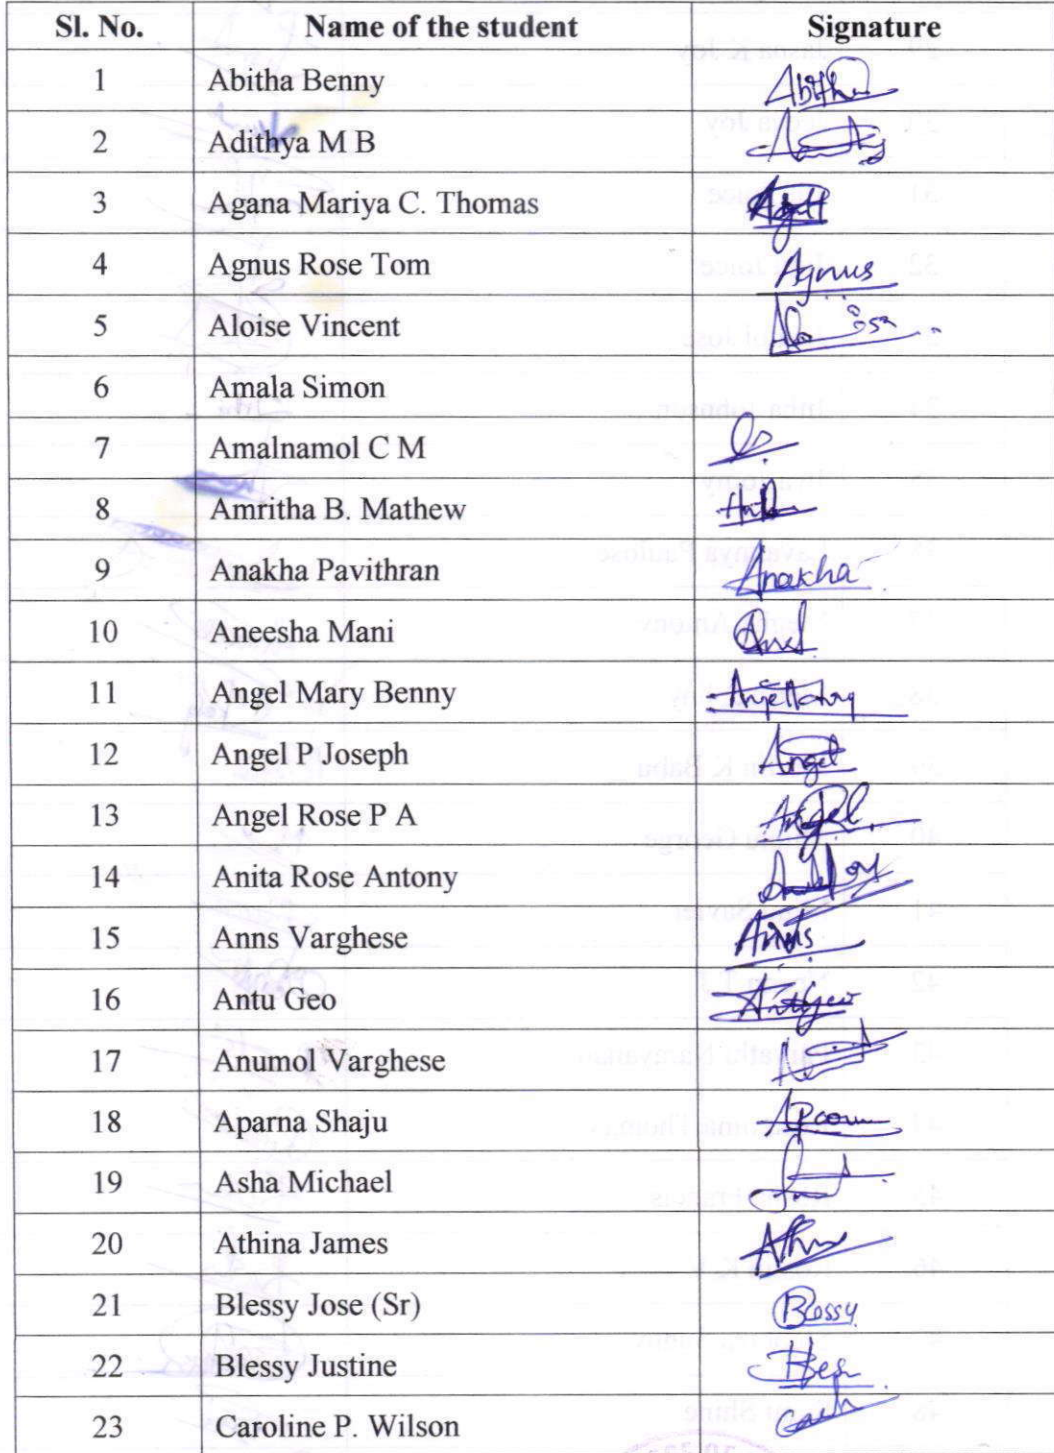 Sl. No. Name of the student Signature
1 Abitha Benny Abitha
2 Adithya M B
3 Agana Mariya C. Thomas
4 Agnus Rose Tom Agnus
5 Aloise Vincent
6 Amala Simon
7 Amalnamol C M
8 Amritha B. Mathew
9 Anakha Pavithran Anakha
10 Aneesha Mani
11 Angel Mary Benny
12 Angel P Joseph Angel
13 Angel Rose P A Angel
14 Anita Rose Antony
15 Anns Varghese Anns
16 Antu Geo
17 Anumol Varghese
18 Aparna Shaju
19 Asha Michael
20 Athina James
21 Blessy Jose (Sr) Blessy
22 Blessy Justine
23 Caroline P. Wilson